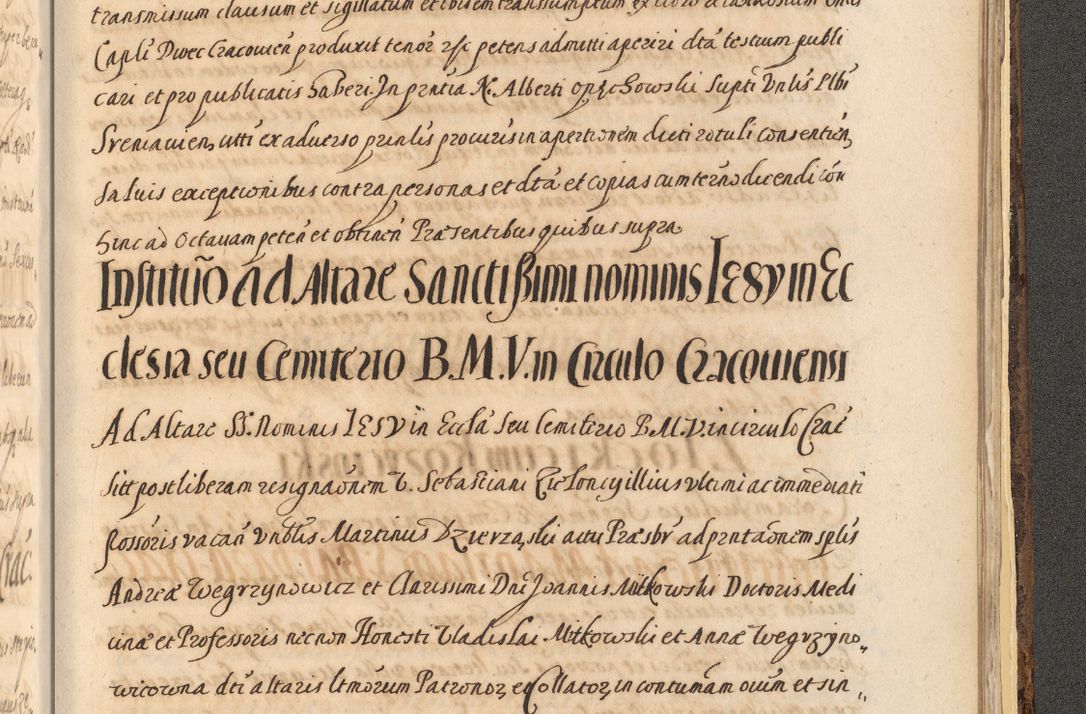 transmissum clausum et sigillatum et ibidem transsumptum ex
Capli Dioec Cracovien produxit tenor rsc petens admitti aperiri dta testium publi
cari et pro publicatis haberi. In prntia N. Alberti Opęchowski Supti Vnlis Plbi
Sreniavien, utti ex adverso prnlis procuris in apertionem dicti rotuli consentien,
Salvis exceptionibus contra personas et dta et copias cum terno dicendi con
hinc ad Octavam peten et obtinen Præsentibus quibus supra
Institutio Ad Altare Sanctissimi nominis IESV in Ec
clesia seu Cemiterio B.M.V. in Circulo Cracoviensi
Ad Altare SS. Nominis IESV in Eccla seu Cemiterio B.M.V. in circulo Crac
Sitt post liberam resignaonem V. Sebastiani Zielonczyillius vltimi ac immediati
possoris vacan Vnblis Martinus Dzierzaski actu Præsbr ad prntaonem splis
Andreæ Wegrzynowicz et Clarissimi Dni Joannis Mitkowski Doctoris Medi
cinæ et Professoris necnon Honesti Vladislai Mitkowski et Annæ Wegrzyno„
wicowna dti altaris ltmorum Patronor et Collator, in contumam ovium et sin„